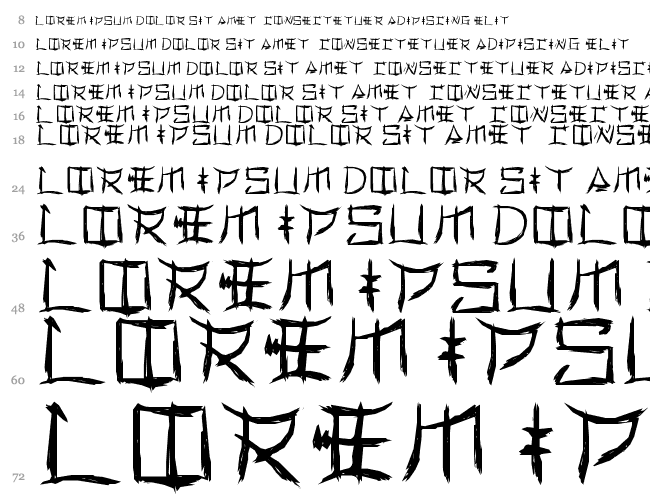 8 LOREM IPSUM DOLOR SIT AMET CONSECTETUER ADIPISCING ELIT
10 LOREM IPSUM DOLOR SIT AMET CONSECTETUER ADIPISCING ELIT
12 LOREM IPSUM DOLOR SIT AMET CONSECTETUER ADIPISC
14 LOREM IPSUM DOLOR SIT AMET CONSECTETUER A
16 LOREM IPSUM DOLOR SIT AMET CONSECTE
18 LOREM IPSUM DOLOR SIT AMET CONSE
24 LOREM IPSUM DOLOR SIT AM
36 LOREM IPSUM DOLO
48 LOREM IPSUM
60 LOREM IPS
72 LOREM IP